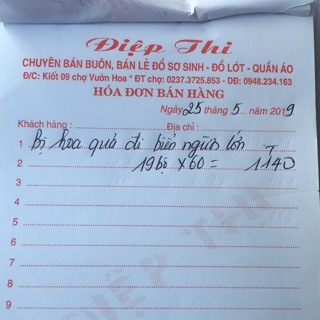 Điệp Thi
CHUYÊN BÁN BUÔN, BÁN LẺ ĐỒ SƠ SINH - ĐỒ LÓT - QUẦN ÁO
Đ/C: Kiốt 09 chợ Vườn Hoa * ĐT chợ: 0237.3725.853 - DĐ: 0948.234.163
HÓA ĐƠN BÁN HÀNG
Ngày 25 tháng 5 năm 2019
Khách hàng : Địa chỉ :
1 Bộ hoa quả đi biển người lớn
2 19bộ x 60 = 1140
3
4
5
6
7
8
9
ĐIỆP THI